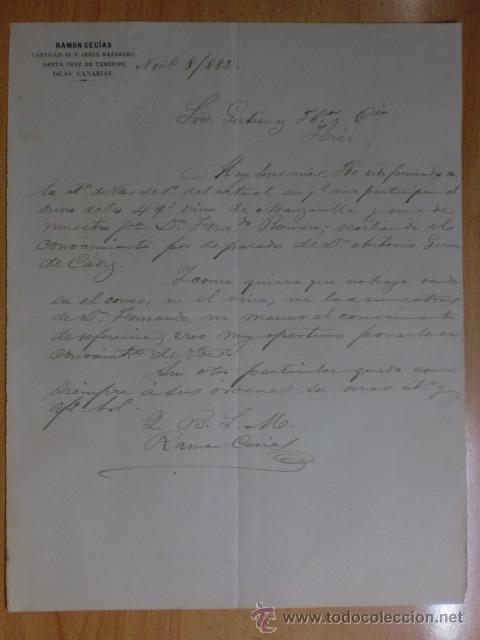 RAMON CECÍAS
CASTILLO 56 Y JESÚS NAZARENO
SANTA CRUZ DE TENERIFE
ISLAS CANARIAS.
Novbe 8/883.
Sres. Gutierrez Hos y Cia
Jeréz
Muy Sres mios: He
la atª de Vdes del 1º del actual en qe me participan el
envio de las 4 qs vino de Manzanilla y una de
muestras pª Dn Fernando Romero; recibiendo el
conocimiento por separado de Dn Antonio
de Cádiz.
Y como quiera que no haya venido
en el correo, ni el vino, ni las muestras
de Dn Fernando, ni menos el conocimiento
de referencia, creo muy oportuno ponerlo en
conocimto de Vdes.
Sin otro particular quedo como
siempre á sus órdenes su mas atº y
Q. B. S. M.
Ramon Cecias
todocoleccion
© www.todocoleccion.com